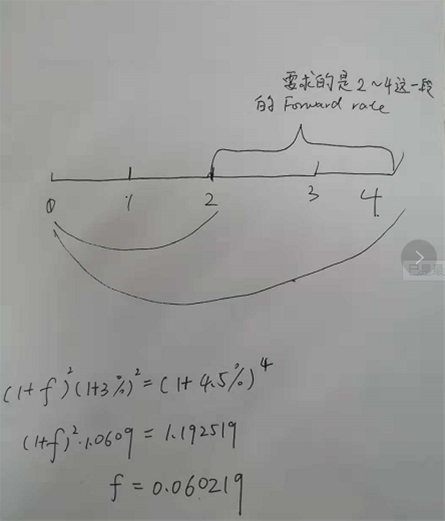 要求的是2~4这一段
的 Forward rate
0 1 2 3 4
(1+f)²(1+3%)²=(1+4.5%)⁴
(1+f)²·1.0609=1.192519
f=0.060219